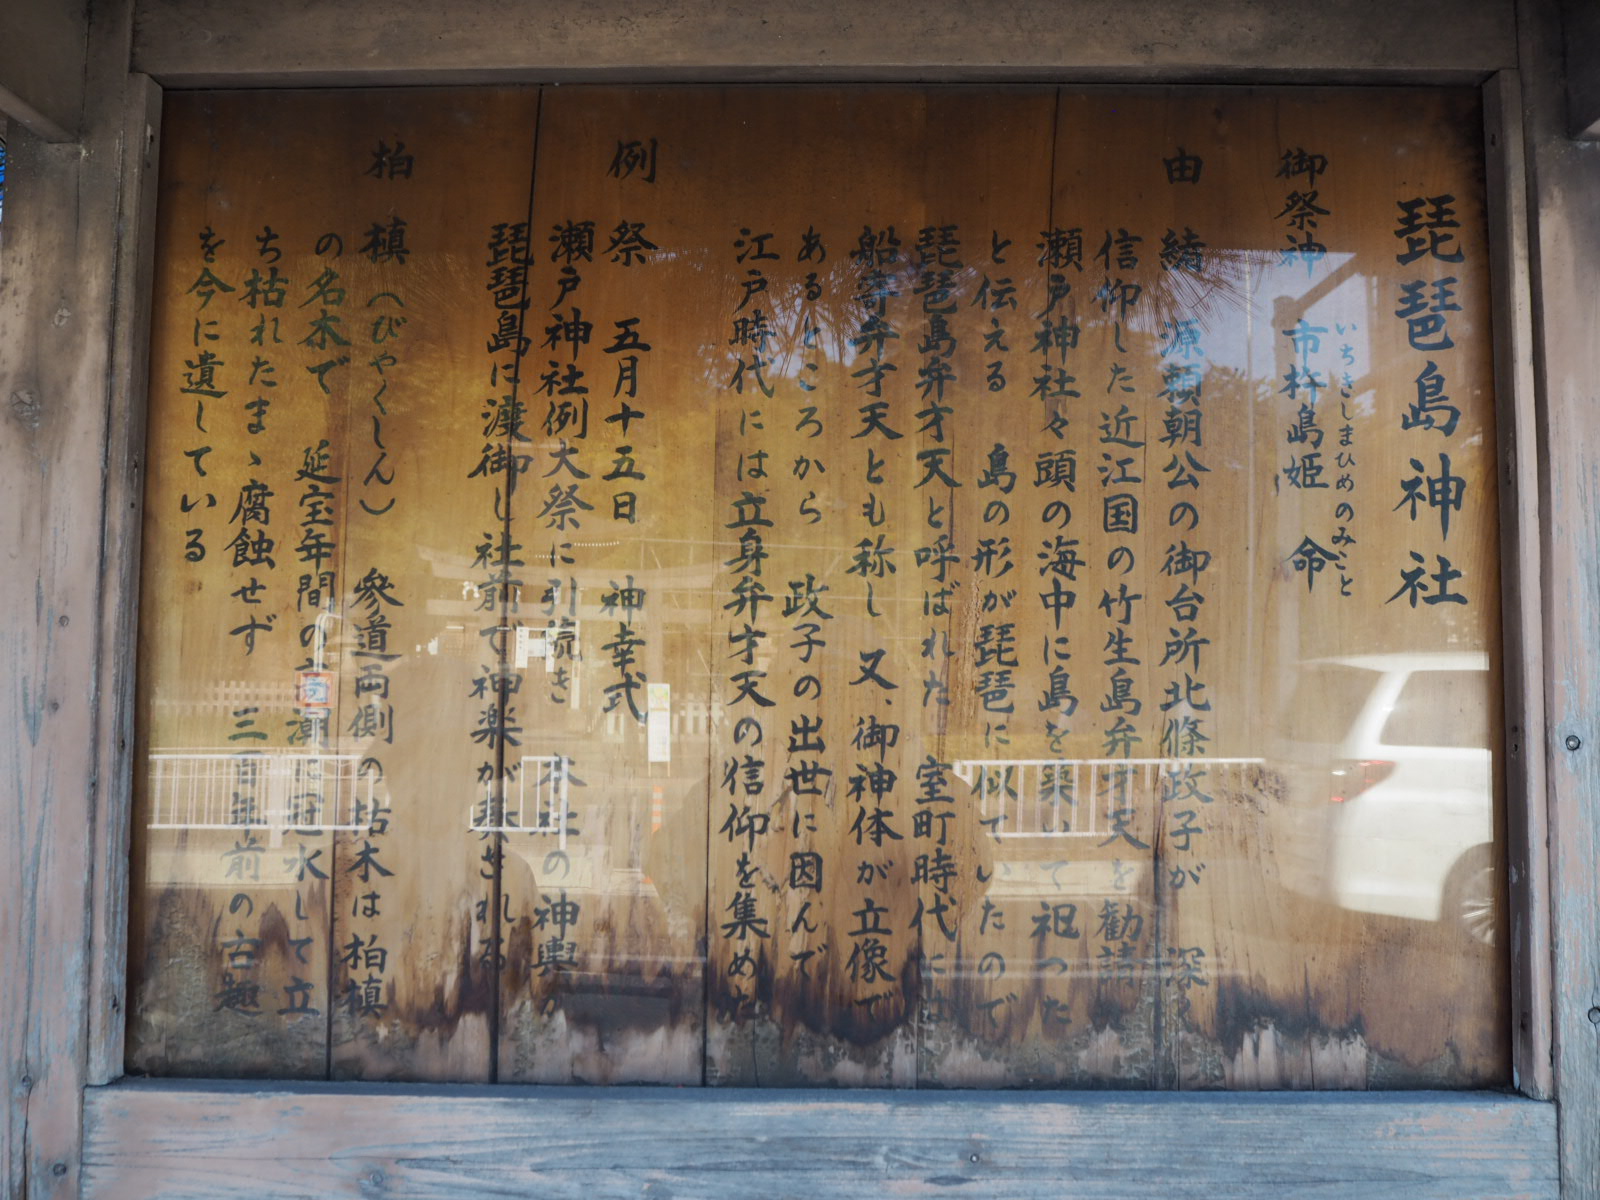 琵琶島神社
御祭神 市杵島姫 命
いちきしまひめのみこと
由 緒 源頼朝公の御台所北條政子が 深く
信仰した近江国の竹生島弁才天を勧請
瀬戸神社々頭の海中に島を築いて祀った
と伝える 島の形が琵琶に似ていたので
琵琶島弁才天と呼ばれた 室町時代には
船寄弁才天とも称し 又、御神体が立像で
あるところから 政子の出世に因んで
江戸時代には立身弁才天の信仰を集めた
例 祭 五月十五日 神幸式
瀬戸神社例大祭に引続き 本社の神輿が
琵琶島に渡御し社前で神楽が奏される
柏 槙(びゃくしん) 參道両側の枯木は柏槙
の名木で 延宝年間の 潮に冠水して立
ち枯れたまゝ腐蝕せず 三百年前の古趣
を今に遺している